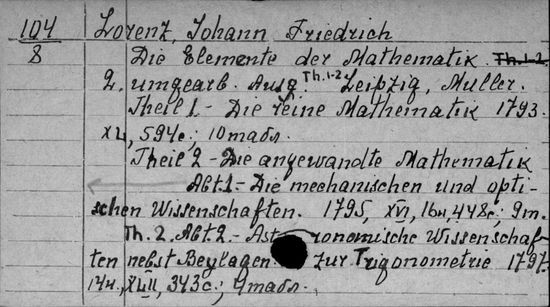 104
8
Lorenz, Johann Friedrich
Die Elemente der Mathematik. Th.1-2.
2. umgearb. Ausg. Th.1-2 Leipzig, Müller.
Theil 1 - Die reine Mathematik 1793.
XII, 594с.; 10табл.
Theil 2 - Die angewandte Mathematik
Abt.1 - Die mechanischen und opti-
schen Wissenschaften. 1795, XVI, 448с.; 9т.
Th. 2. Abt.2. - Astronomische Wissenschaf-
ten nebst Beylagen zur Trigonometrie 1797.
343с.; табл.